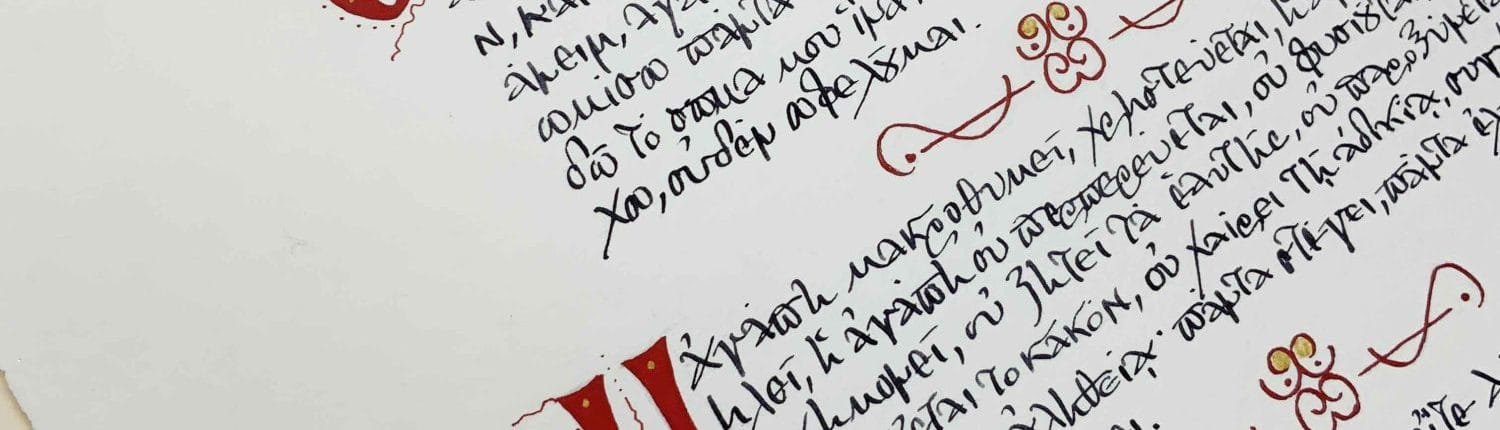 ν, και
άνειν, αγά
ωμίσω πάντα
δῶ τὸ σῶμα μου ἵνα
χω, οὐδὲν ὠφελοῦμαι.
ἀγάπη μακροθυμεῖ, χρηστεύεται,
ηλεῖ, ἡ ἀγάπη οὐ περπερεύεται, οὐ φυσιοῦται
χημονεῖ, οὐ ζητεῖ τὰ ἑαυτῆς, οὐ παροξύνε
εται το κακόν, οὐ χαίρει τῇ ἀδικίᾳ, συγ
ἀληθείᾳ· πάντα στέγει, πάντα